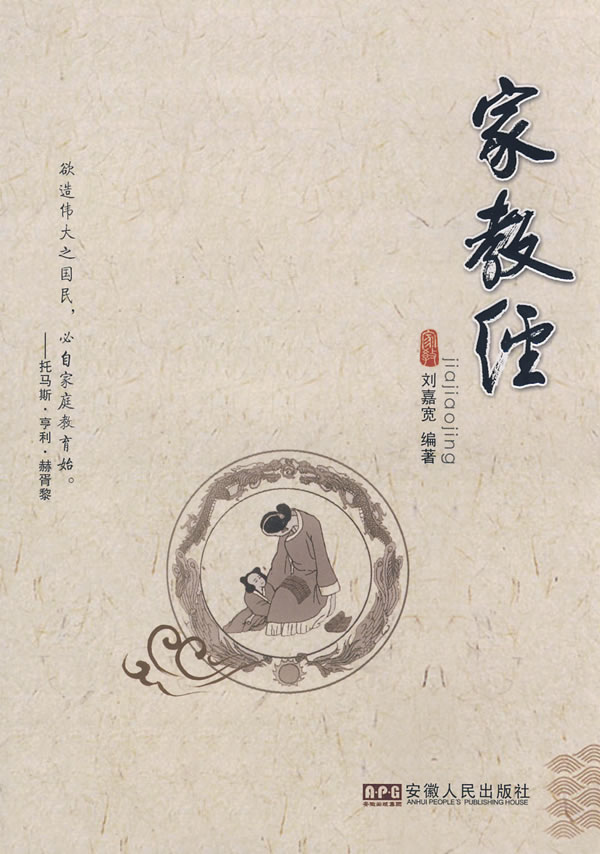 家教经
jiajiaojing
家教
刘嘉宽 编著
欲造伟大之国民，
必自家庭教育始。
——托马斯·亨利·赫胥黎
A·P·G
安徽出版集团
安徽人民出版社
ANHUI PEOPLE'S PUBLISHING HOUSE